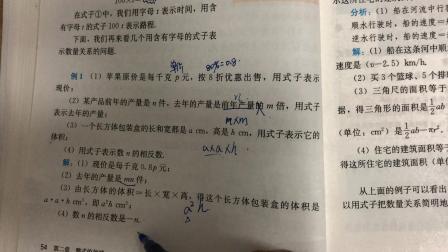 在式子①中，我们用字母 t 表示时间，用含
有字母 t 的式子 100 t 表示路程.
下面，我们再来看几个用含有字母的式子表
示数量关系的问题.
80%=0.8
例1 (1) 苹果原价是每千克 p 元，按 8 折优惠出售，用式子表示
现价；
(2) 某产品前年的产量是 n 件，去年的产量是前年产量的 m 倍，用式子
表示去年的产量；
m×n
(3) 一个长方体包装盒的长和宽都是 a cm，高是 h cm，用式子表示它的
体积；
a×a×h
(4) 用式子表示数 n 的相反数.
解：(1) 现价是每千克 0.8p 元；
(2) 去年的产量是 mn 件；
(3) 由长方体的体积＝长×宽×高，得这个长方体包装盒的体积是
a·a·h cm³，即 a²h cm³；
a²h
(4) 数 n 的相反数是 −n.
54 第二章
分析：(1) 船在河流中行
顺水行驶时，船的速度＝
逆水行驶时，船的速度＝
解：(1) 船在这条河中顺
速度是 (v−2.5) km/h.
(2) 买 3 个篮球、5 个排
(3) 三角尺的面积等于
据，得三角形的面积是 ½ab
(单位：cm²) 是 ½ab−πr².
(4) 住宅的建筑面积等
得这所住宅的建筑面积 (单
从上面的例子可以看出
以用式子把数量关系简明地